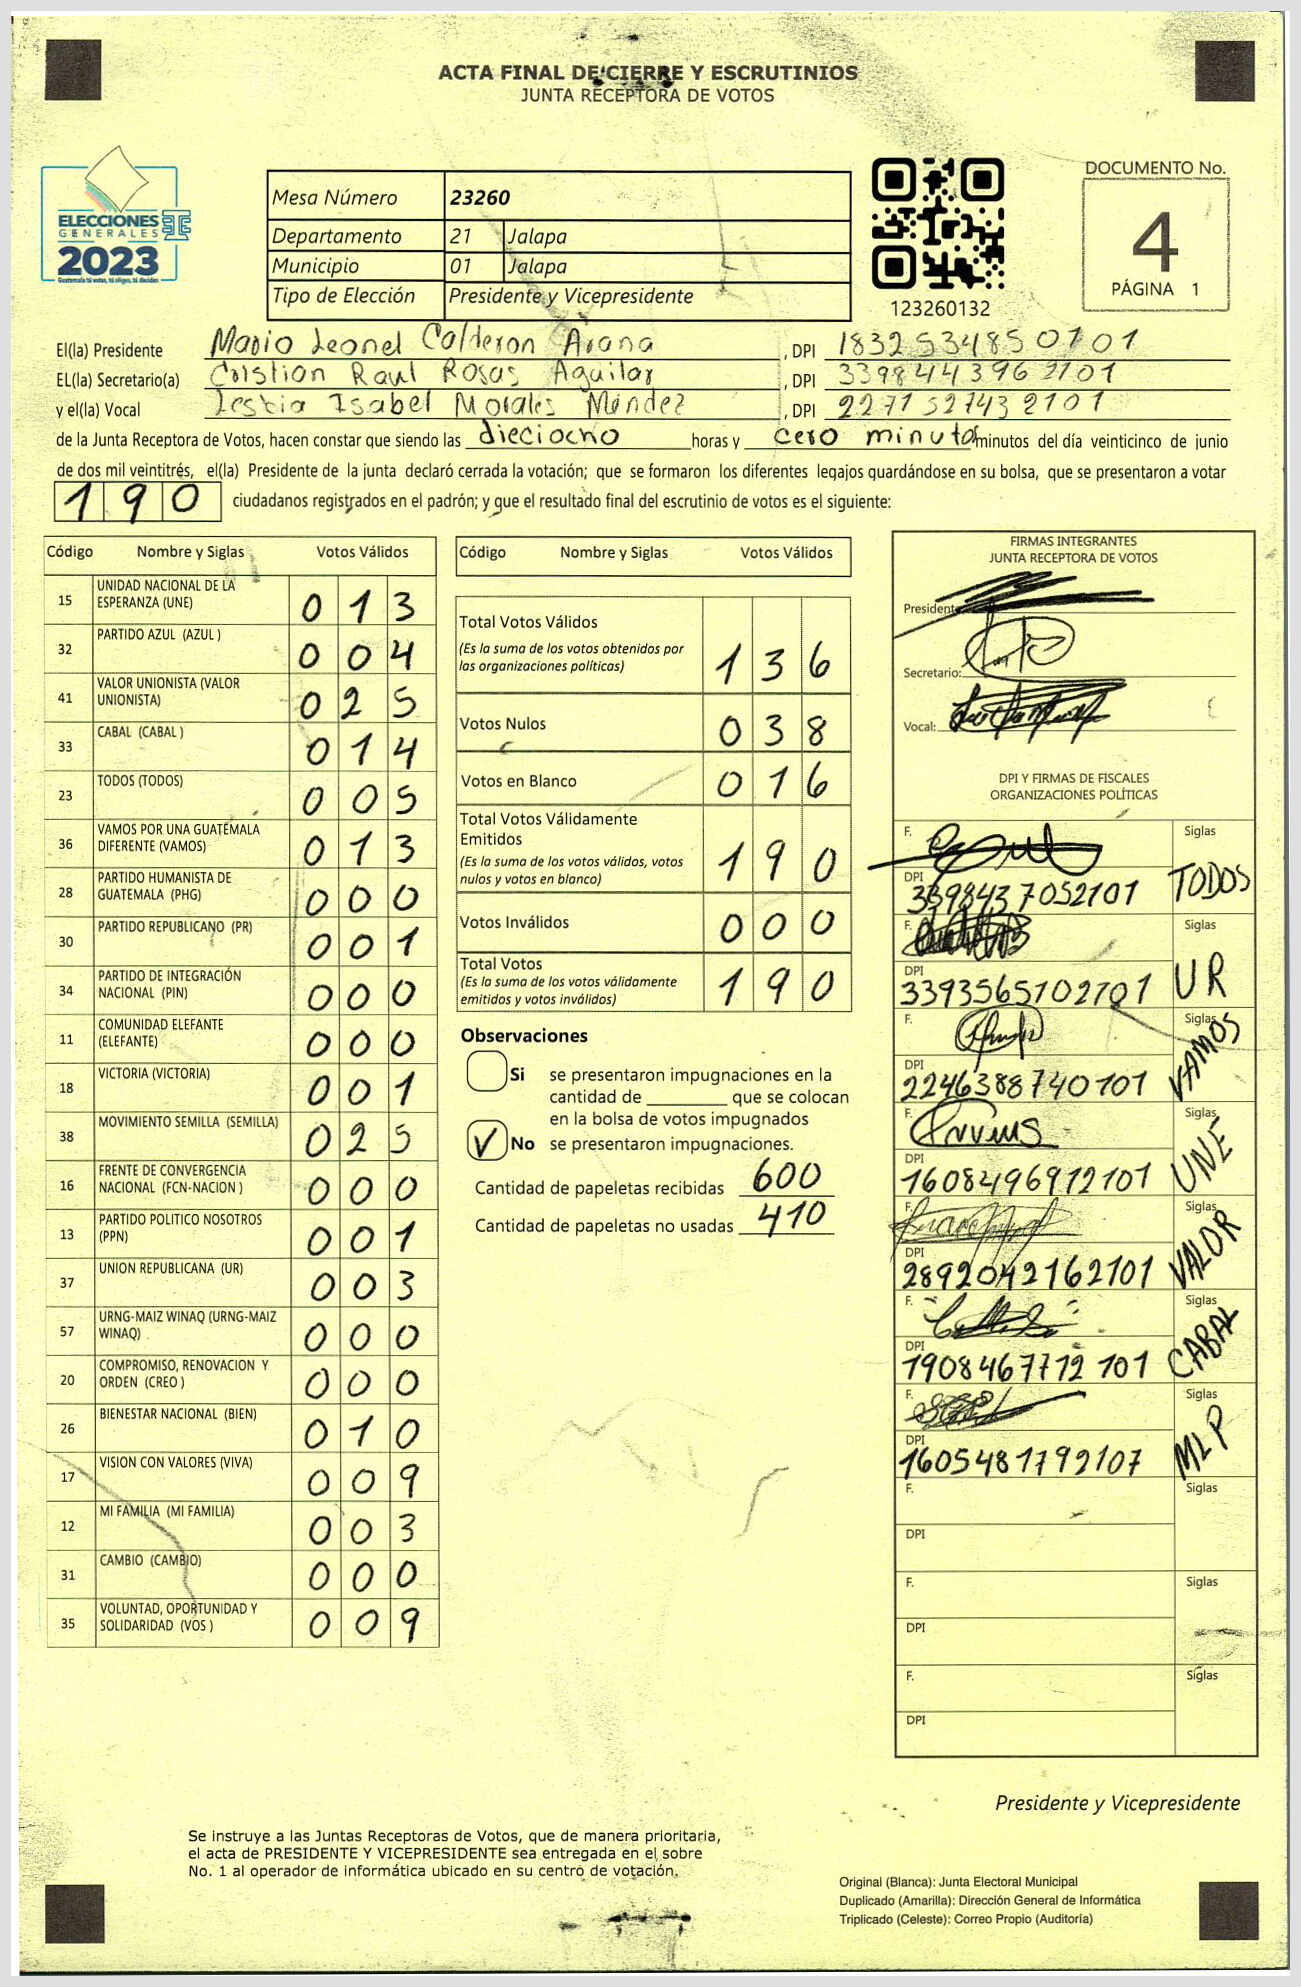 ACTA FINAL DE CIERRE Y ESCRUTINIOS
JUNTA RECEPTORA DE VOTOS
ELECCIONES
GENERALES
2023
Guatemala tú votas, tú eliges, tú decides
Mesa Número 23260
Departamento 21 Jalapa
Municipio 01 Jalapa
Tipo de Elección Presidente y Vicepresidente
123260132
DOCUMENTO No.
4
PÁGINA 1
El(la) Presidente Mario Leonel Calderon Arana , DPI 1832534850101
EL(la) Secretario(a) Cristian Raul Rosas Aguilar , DPI 3398443962101
y el(la) Vocal Lesbia Isabel Morales Méndez , DPI 2271527432101
de la Junta Receptora de Votos, hacen constar que siendo las dieciocho horas y cero minutos minutos del día veinticinco de junio
de dos mil veintitrés, el(la) Presidente de la junta declaró cerrada la votación; que se formaron los diferentes legajos quardándose en su bolsa, que se presentaron a votar
190 ciudadanos registrados en el padrón; y que el resultado final del escrutinio de votos es el siguiente:
Código Nombre y Siglas Votos Válidos
15 UNIDAD NACIONAL DE LA ESPERANZA (UNE) 013
32 PARTIDO AZUL (AZUL ) 004
41 VALOR UNIONISTA (VALOR UNIONISTA) 025
33 CABAL (CABAL ) 014
23 TODOS (TODOS) 005
36 VAMOS POR UNA GUATEMALA DIFERENTE (VAMOS) 013
28 PARTIDO HUMANISTA DE GUATEMALA (PHG) 000
30 PARTIDO REPUBLICANO (PR) 001
34 PARTIDO DE INTEGRACIÓN NACIONAL (PIN) 000
11 COMUNIDAD ELEFANTE (ELEFANTE) 000
18 VICTORIA (VICTORIA) 001
38 MOVIMIENTO SEMILLA (SEMILLA) 025
16 FRENTE DE CONVERGENCIA NACIONAL (FCN-NACION ) 000
13 PARTIDO POLITICO NOSOTROS (PPN) 001
37 UNION REPUBLICANA (UR) 003
57 URNG-MAIZ WINAQ (URNG-MAIZ WINAQ) 000
20 COMPROMISO, RENOVACION Y ORDEN (CREO ) 000
26 BIENESTAR NACIONAL (BIEN) 010
17 VISION CON VALORES (VIVA) 009
12 MI FAMILIA (MI FAMILIA) 003
31 CAMBIO (CAMBIO) 000
35 VOLUNTAD, OPORTUNIDAD Y SOLIDARIDAD (VOS ) 009
Código Nombre y Siglas Votos Válidos
Total Votos Válidos
(Es la suma de los votos obtenidos por las organizaciones políticas) 136
Votos Nulos 038
Votos en Blanco 016
Total Votos Válidamente Emitidos
(Es la suma de los votos válidos, votos nulos y votos en blanco) 190
Votos Inválidos 000
Total Votos
(Es la suma de los votos válidamente emitidos y votos inválidos) 190
Observaciones
Si se presentaron impugnaciones en la
cantidad de ________ que se colocan
en la bolsa de votos impugnados
No se presentaron impugnaciones.
Cantidad de papeletas recibidas 600
Cantidad de papeletas no usadas 410
FIRMAS INTEGRANTES
JUNTA RECEPTORA DE VOTOS
Presidente:
Secretario:
Vocal:
DPI Y FIRMAS DE FISCALES
ORGANIZACIONES POLÍTICAS
F. Siglas
DPI 3398437052101 TODOS
F. Siglas
DPI 3393565102101 UR
F. Siglas
DPI 2246388740101 VAMOS
F. Siglas
DPI 1608496912101 UNE
F. Siglas
DPI 2892042162101 VALOR
F. Siglas
DPI 1908467712101 CABAL
F. Siglas
DPI 1605481792107 MLP
F. Siglas
DPI
F. Siglas
DPI
F. Siglas
DPI
Presidente y Vicepresidente
Se instruye a las Juntas Receptoras de Votos, que de manera prioritaria,
el acta de PRESIDENTE Y VICEPRESIDENTE sea entregada en el sobre
No. 1 al operador de informática ubicado en su centro de votación.
Original (Blanca): Junta Electoral Municipal
Duplicado (Amarilla): Dirección General de Informática
Triplicado (Celeste): Correo Propio (Auditoría)